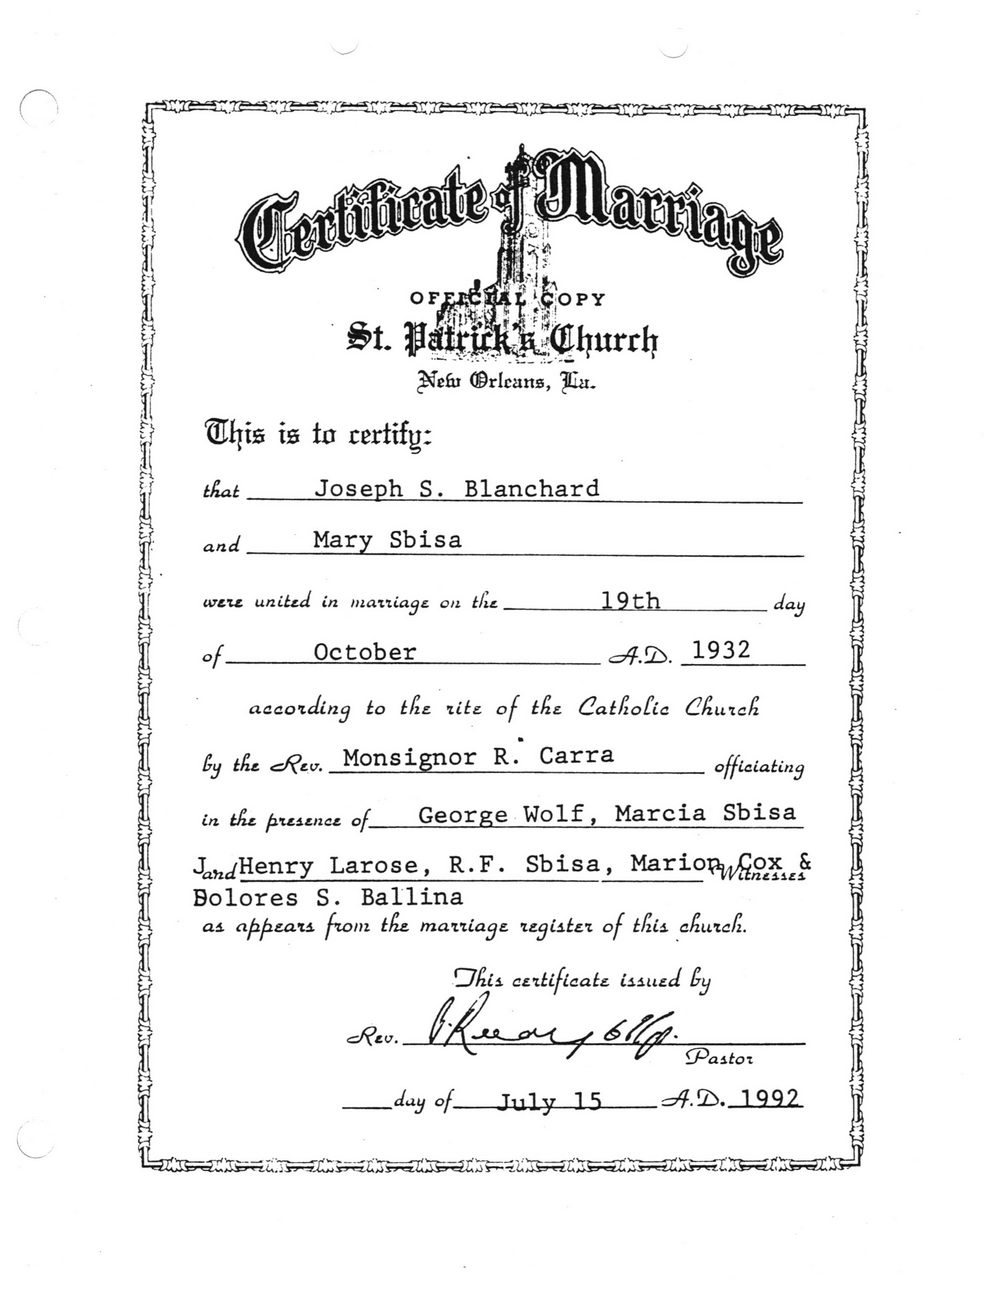 Certificate of Marriage
OFFICIAL COPY
St. Patrick's Church
New Orleans, La.
This is to certify:
that Joseph S. Blanchard
and Mary Sbisa
were united in marriage on the 19th day
of October A.D. 1932
according to the rite of the Catholic Church
by the Rev. Monsignor R. Carra officiating
in the presence of George Wolf, Marcia Sbisa
J and Henry Larose, R.F. Sbisa, Marion Cox & Witnesses
Dolores S. Ballina
as appears from the marriage register of this church.
This certificate issued by
Rev.
Pastor
day of July 15 A.D. 1992